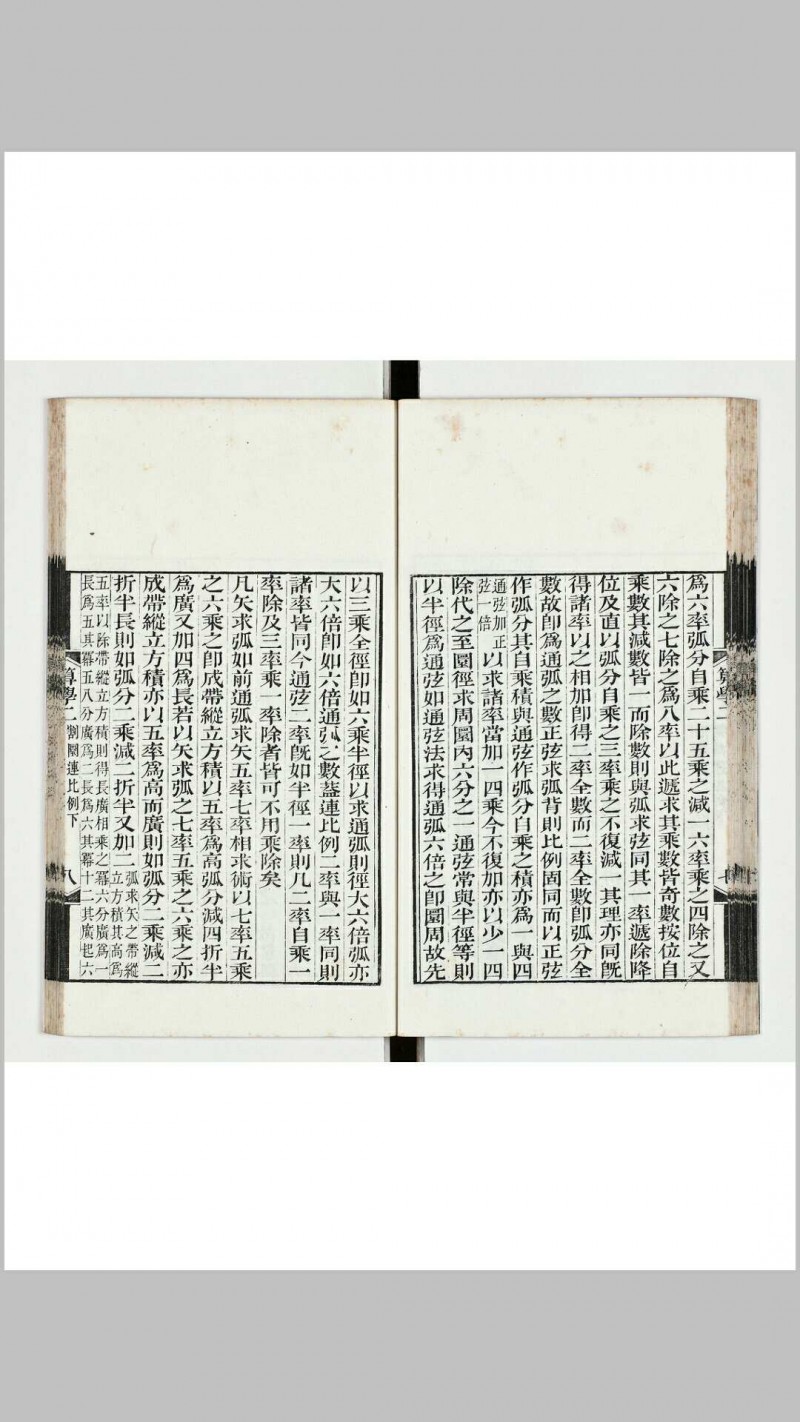 爲六率弧分自乘二十五乘之減一六率乘之四除之又
六除之七除之爲八率以此遞求其乘數皆奇數按位自
乘數其減數皆一而除數則與弧求弦同其一率遞除降
位及直以弧分自乘之三率乘之不復減一其理亦同旣
得諸率以之相加卽得二率全數而二率全數卽弧分全
數故卽爲通弧之數正弦求弧背則比例固同而以正弦
作弧分其自乘積與通弦作弧分自乘之積亦爲一與四
通弦加正
弦一倍
以求諸率當加一四乘今不復加亦以少一四
除代之至圜徑求周圜內六分之一通弦常與半徑等則
以半徑爲通弦如通弦法求得通弧六倍之卽圜周故先
算學二
以三乘全徑卽如六乘半徑以求通弧則徑大六倍弧亦
大六倍卽如六倍通弧之數蓋連比例二率與一率同則
諸率皆同今通弦二率旣如半徑一率則凡二率自乘一
率除及三率乘一率除者皆可不用乘除矣
凡矢求弧如前通弧求矢五率七率相求術以七率五乘
之六乘之卽成帶縱立方積以五率爲高弧分減四折半
爲廣又加四爲長若以矢求弧之七率五乘之六乘之亦
成帶縱立方積亦以五率爲高而廣則如弧分二乘減二
折半長則如弧分二乘減二折半又加二
弧求矢之帶縱
立方積其高爲
五率以除帶縱立方積則得長廣相乘之冪六分廣爲一
長爲五其冪五八分廣爲二長爲六其冪十二其廣起六
算學二
割圜連比例下
八